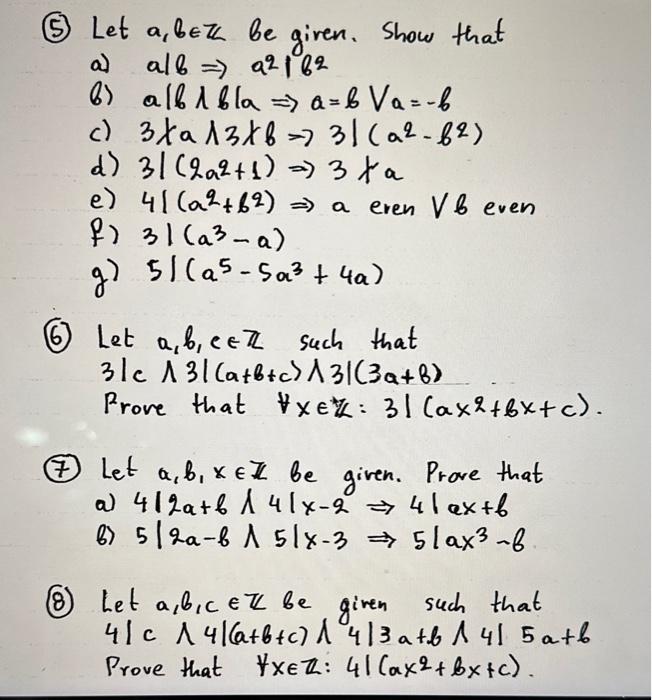 ⑤ Let a,b∈ℤ be given. Show that
a) a|b ⇒ a²|b²
b) a|b ∧ b|a ⇒ a=b ∨ a=-b
c) 3∤a ∧ 3∤b ⇒ 3|(a²-b²)
d) 3|(2a²+1) ⇒ 3∤a
e) 4|(a²+b²) ⇒ a even ∨ b even
f) 3|(a³-a)
g) 5|(a⁵-5a³+4a)
⑥ Let a,b,c∈ℤ such that
3|c ∧ 3|(a+b+c) ∧ 3|(3a+b)
Prove that ∀x∈ℤ: 3|(ax²+bx+c).
⑦ Let a,b,x∈ℤ be given. Prove that
a) 4|2a+b ∧ 4|x-2 ⇒ 4|ax+b
b) 5|2a-b ∧ 5|x-3 ⇒ 5|ax³-b
⑧ Let a,b,c∈ℤ be given such that
4|c ∧ 4|(a+b+c) ∧ 4|3a+b ∧ 4|5a+b
Prove that ∀x∈ℤ: 4|(ax²+bx+c).